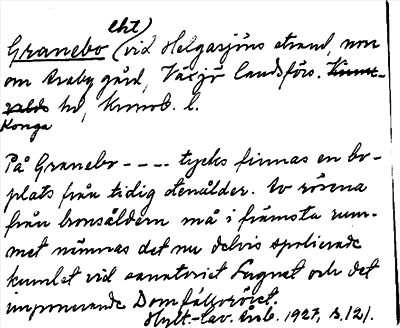 eht)
Granebo (vid Helgasjöns strand, norr
om Araby gård, Växjö landsförs. Kinne-
valds hd, Kronob. l.
Konga
På Granebo - - - - tycks finnas en bo-
plats från tidig stenålder. Av rösena
från bronsåldern må i främsta rum-
met nämnas det nu delvis spolierade
kumlet vid sanatoriet Lugnet och det
imponerande Domfällroröret.
Hylt.-Cav. årsb. 1927, s. 121.